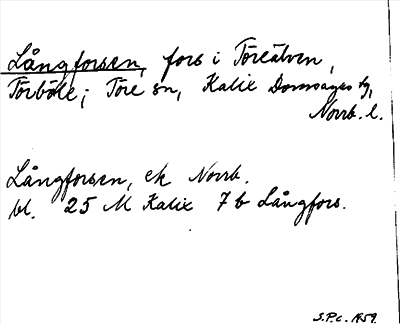 Långforsen, fors i Töreälven,
Törböle; Töre sn, Kalix Domsagas tg,
Norrb. l.
Långforsen, ek Norrb.
bl. 25 M Kalix 7 b Långfors.
S.P.c. 1959.